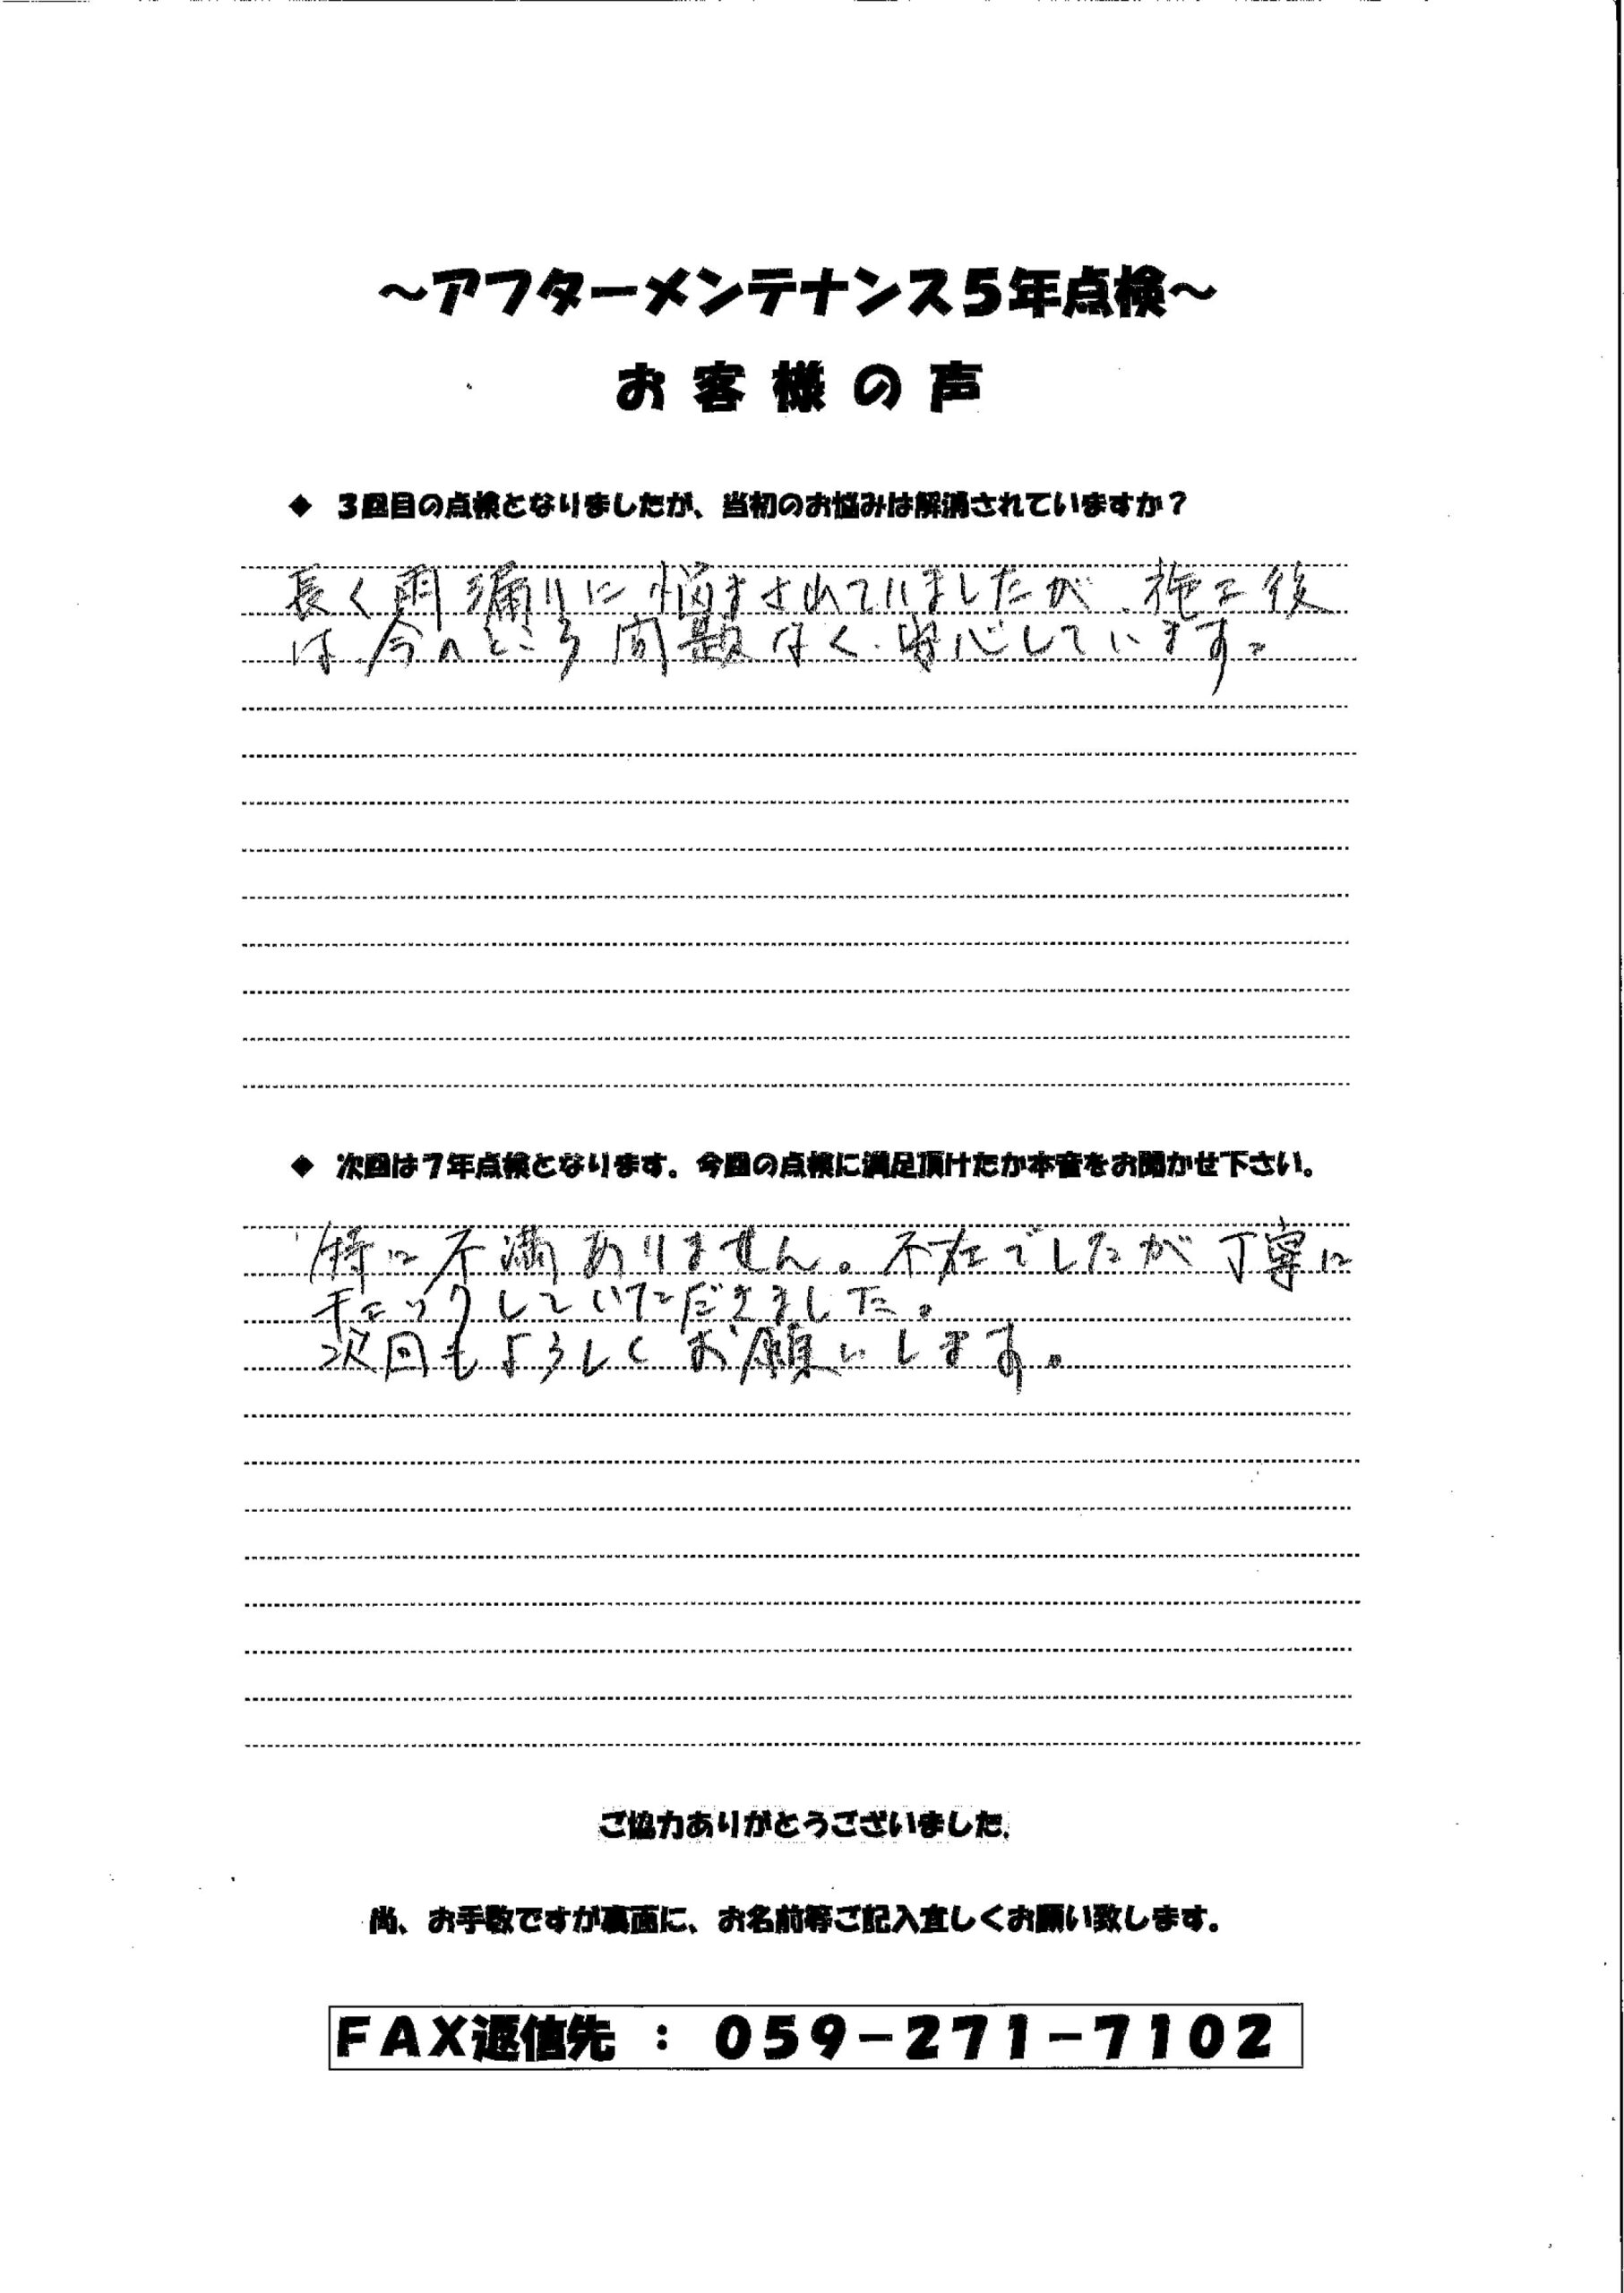 ～アフターメンテナンス５年点検～
お客様の声
◆ ３回目の点検となりましたが、当初のお悩みは解消されていますか？
長く雨漏りに悩まされていましたが、施工後
は今のところ問題なく安心しています。
◆ 次回は７年点検となります。今回の点検に満足頂けたか本音をお聞かせ下さい。
特に不満ありません。不在でしたが丁寧に
チェックしていただきました。
次回もよろしくお願いします。
ご協力ありがとうございました。
尚、お手数ですが裏面に、お名前等ご記入宜しくお願い致します。
ＦＡＸ返信先 ： ０５９－２７１－７１０２